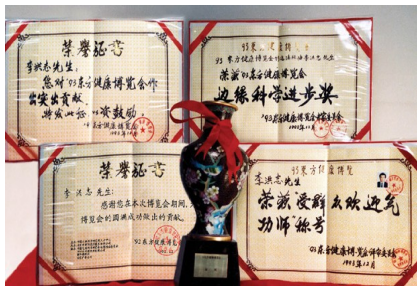 荣誉证书
李洪志先生:
您对'93东方健康博览会作
出突出贡献,
特发此证,以资鼓励
'93东方健康博览会
'93东方健康博览会
荣获'93东方健康博览会
边缘科学进步奖
'93东方健康博览会
1993年12月
荣誉证书
李洪志先生:
感谢您在本次博览会期间,
博览会的圆满成功做出的贡献。
'93东方健康博览会
'93东方健康博览
李洪志先生
荣获受群众欢迎气
功师称号
'93东方健康博览会评审委员会
1993年12月